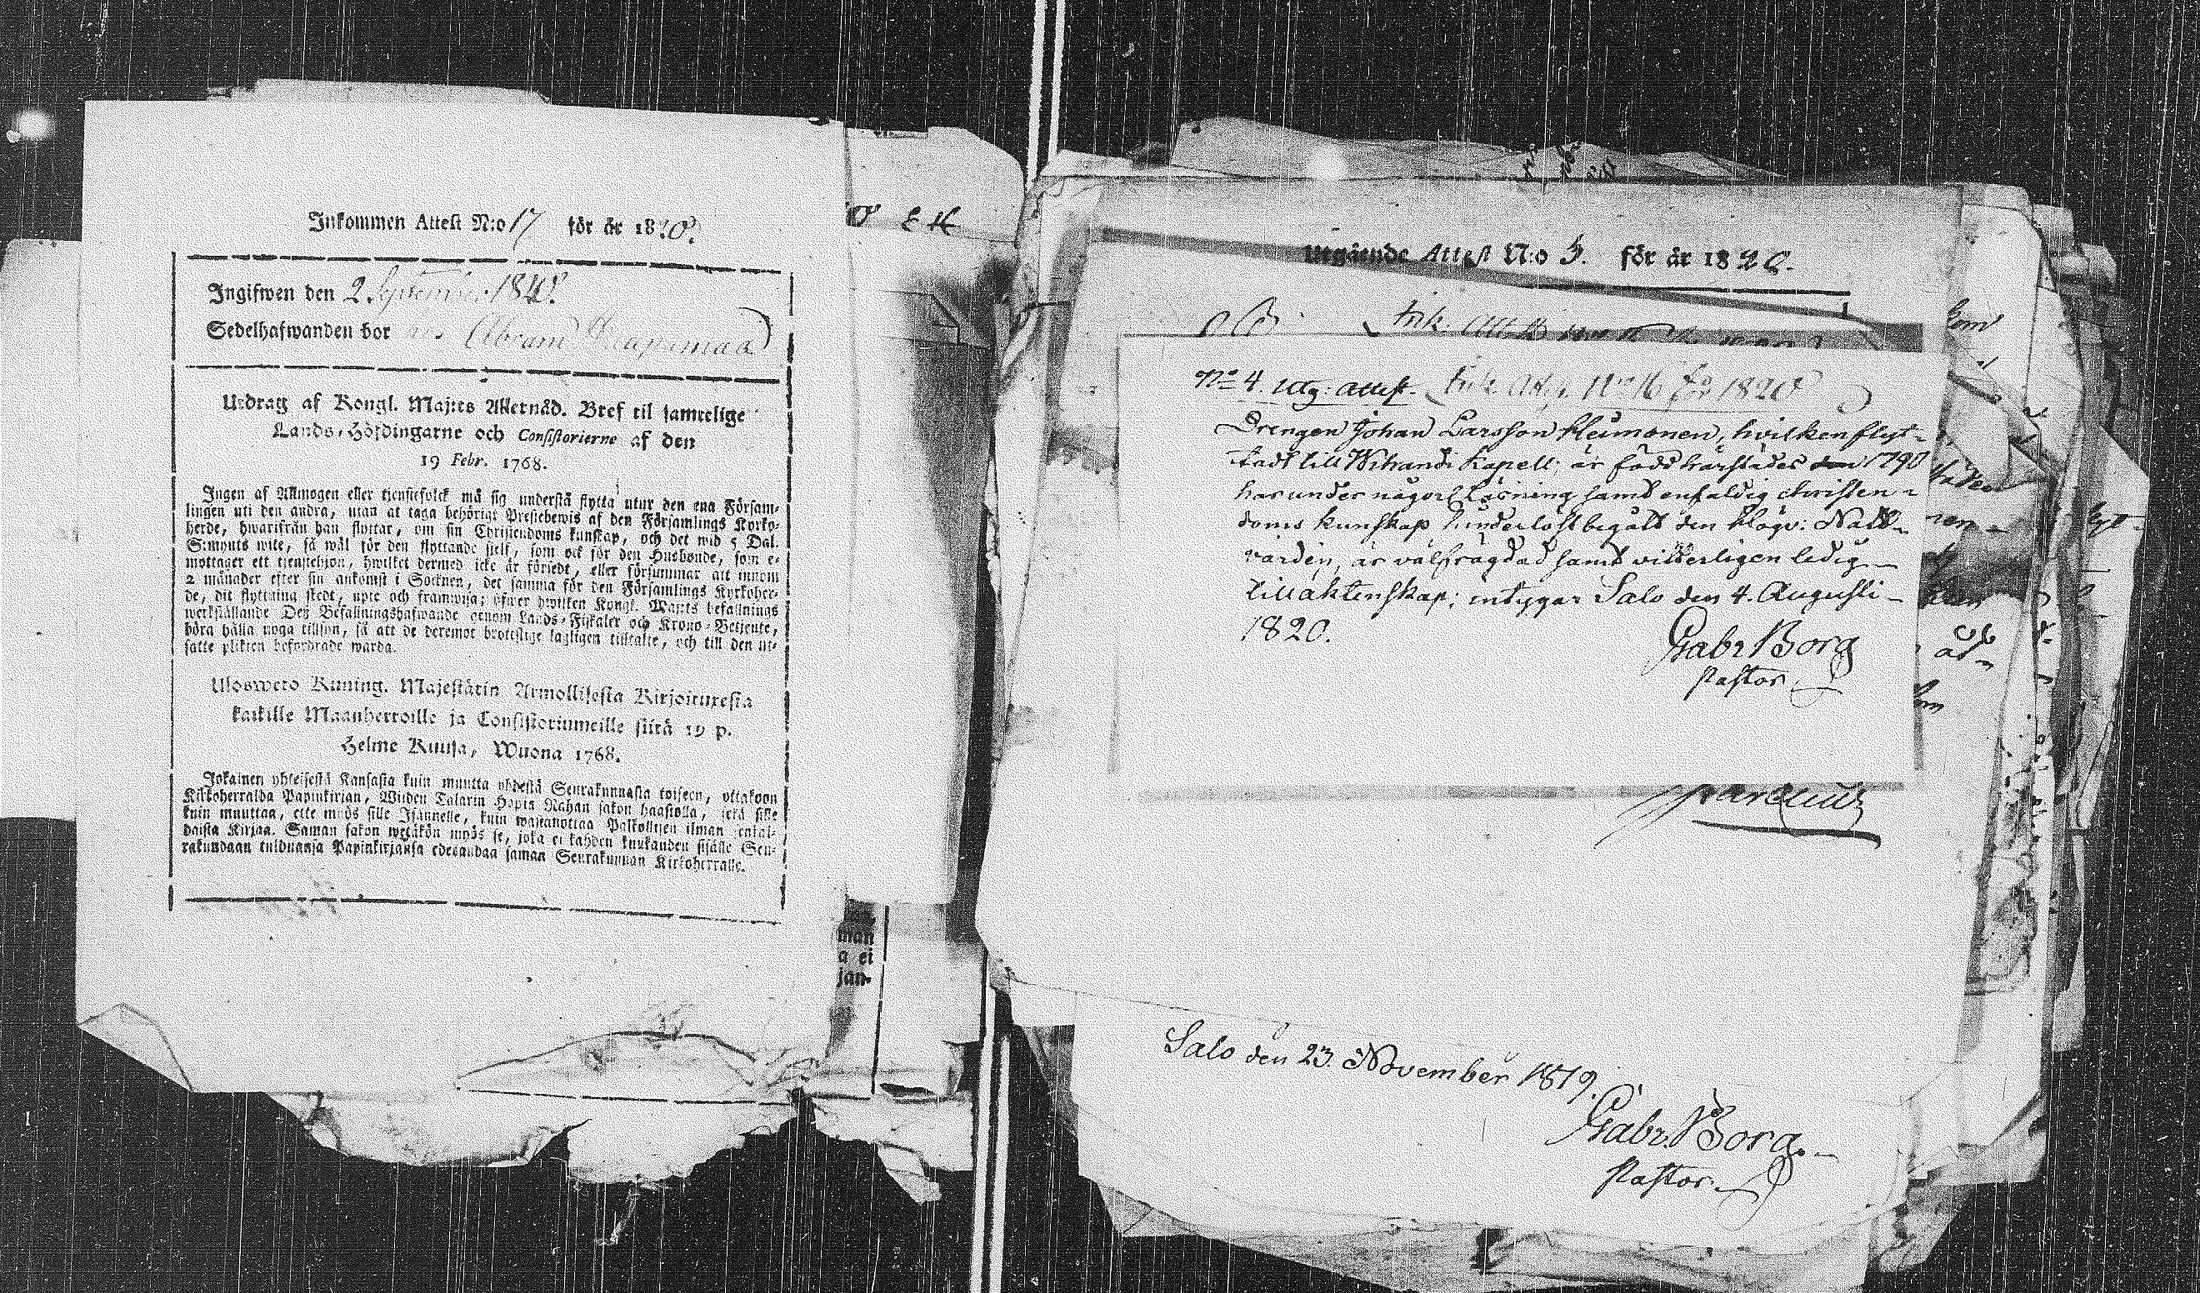 Inkommen Attest N:o 17 för år 1820.
Ingifwen den 2 September 1820.
Sedelhafwanden bor hos Abram
Utdrag af Kongl. Majtts Allernåd. Bref til samtelige
Lands-Höfdingarne och Consistorierne af den
19 Febr. 1768.
Ingen af Allmogen eller tjenstefolck må sig understå flytta utur den ena Försam-
lingen uti den andra, utan at taga behörigt Prestebewis af den Församlings Kyrko-
herde, hwarifrån han flyttar, om sin Christendoms kunskap, och det wid 5 Dal.
S:mynts wite, så wäl för den flyttande sielf, som ock för den Husbonde, som e-
mottager ett tjenstehjon, hwilket dermed icke är försedt, eller försummar att innom
2 månader efter sin ankomst i Socknen, det samma för den Församlings Kyrkoher-
de, dit flyttning skedt, upte och framwisa; öfwer hwilken Kongl. Majtts befallnings
werkställande Deß Befallningshafwande genom Lands-Fiskaler och Krono-Betjente,
böra hålla noga tillsyn, så att de deremot brottslige lagligen tilltalte, och till den ut-
satte plikten befordrade warda.
Uloswето Kuning. Majestätin Armollisesta Kirjoituxesta
kaikille Maanherroille ja Consistoriumeille siitä 19 p.
Helme Kuusa, Wuona 1768.
Jokainen yhteisestä Kansasta kuin muutta yhdestä Seurakunnasta toiseen, ottakoon
Kirkoherralda Papinkirjan, Wiiden Talarin Hopia Rahan sakon haastolla, sekä sille
kuin muuttaa, ette myös sille Isännelle, kuin wastanottaa Palkollisen ilman sental-
daista Kirjaa. Saman sakon wetäkön myös se, joka ei kahden kuukauden sisälle Seu-
rakundaan tulduansa Papinkirjansa edesandaa saman Seurakunnan Kirkoherralle.
man
a ei
jan-
Utgående Attest N:o 3. för år 1820.
No 4. utg: attest. Ink. Att. No 16 för 1820
Drengen Johan Larsson Heimonen, hvilken flyt-
tadt till Wihandi Kapell, är född härstädes 1790
har under någorl. läsning samt enfaldig christen-
doms kunskap hinderlöst begått den Högv: Natt-
varden, är välfrägdad samt vitterligen ledig
till äktenskap; intygar Salo den 4. Augusti
1820.
Gabr Borg
Pastor.
Salo den 23. November 1819.
Gabr. Borg.
Pastor.